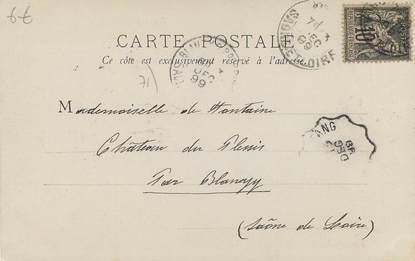 6 f
CARTE POSTALE
Ce côté est exclusivement réservé à l'adresse.
71
Mademoiselle de Fontaine
Château du Plessis
Par Blanzy
(Saône de Loire)
DEC
99
LOIRE
DEC
99
10
ANG
DEC
99